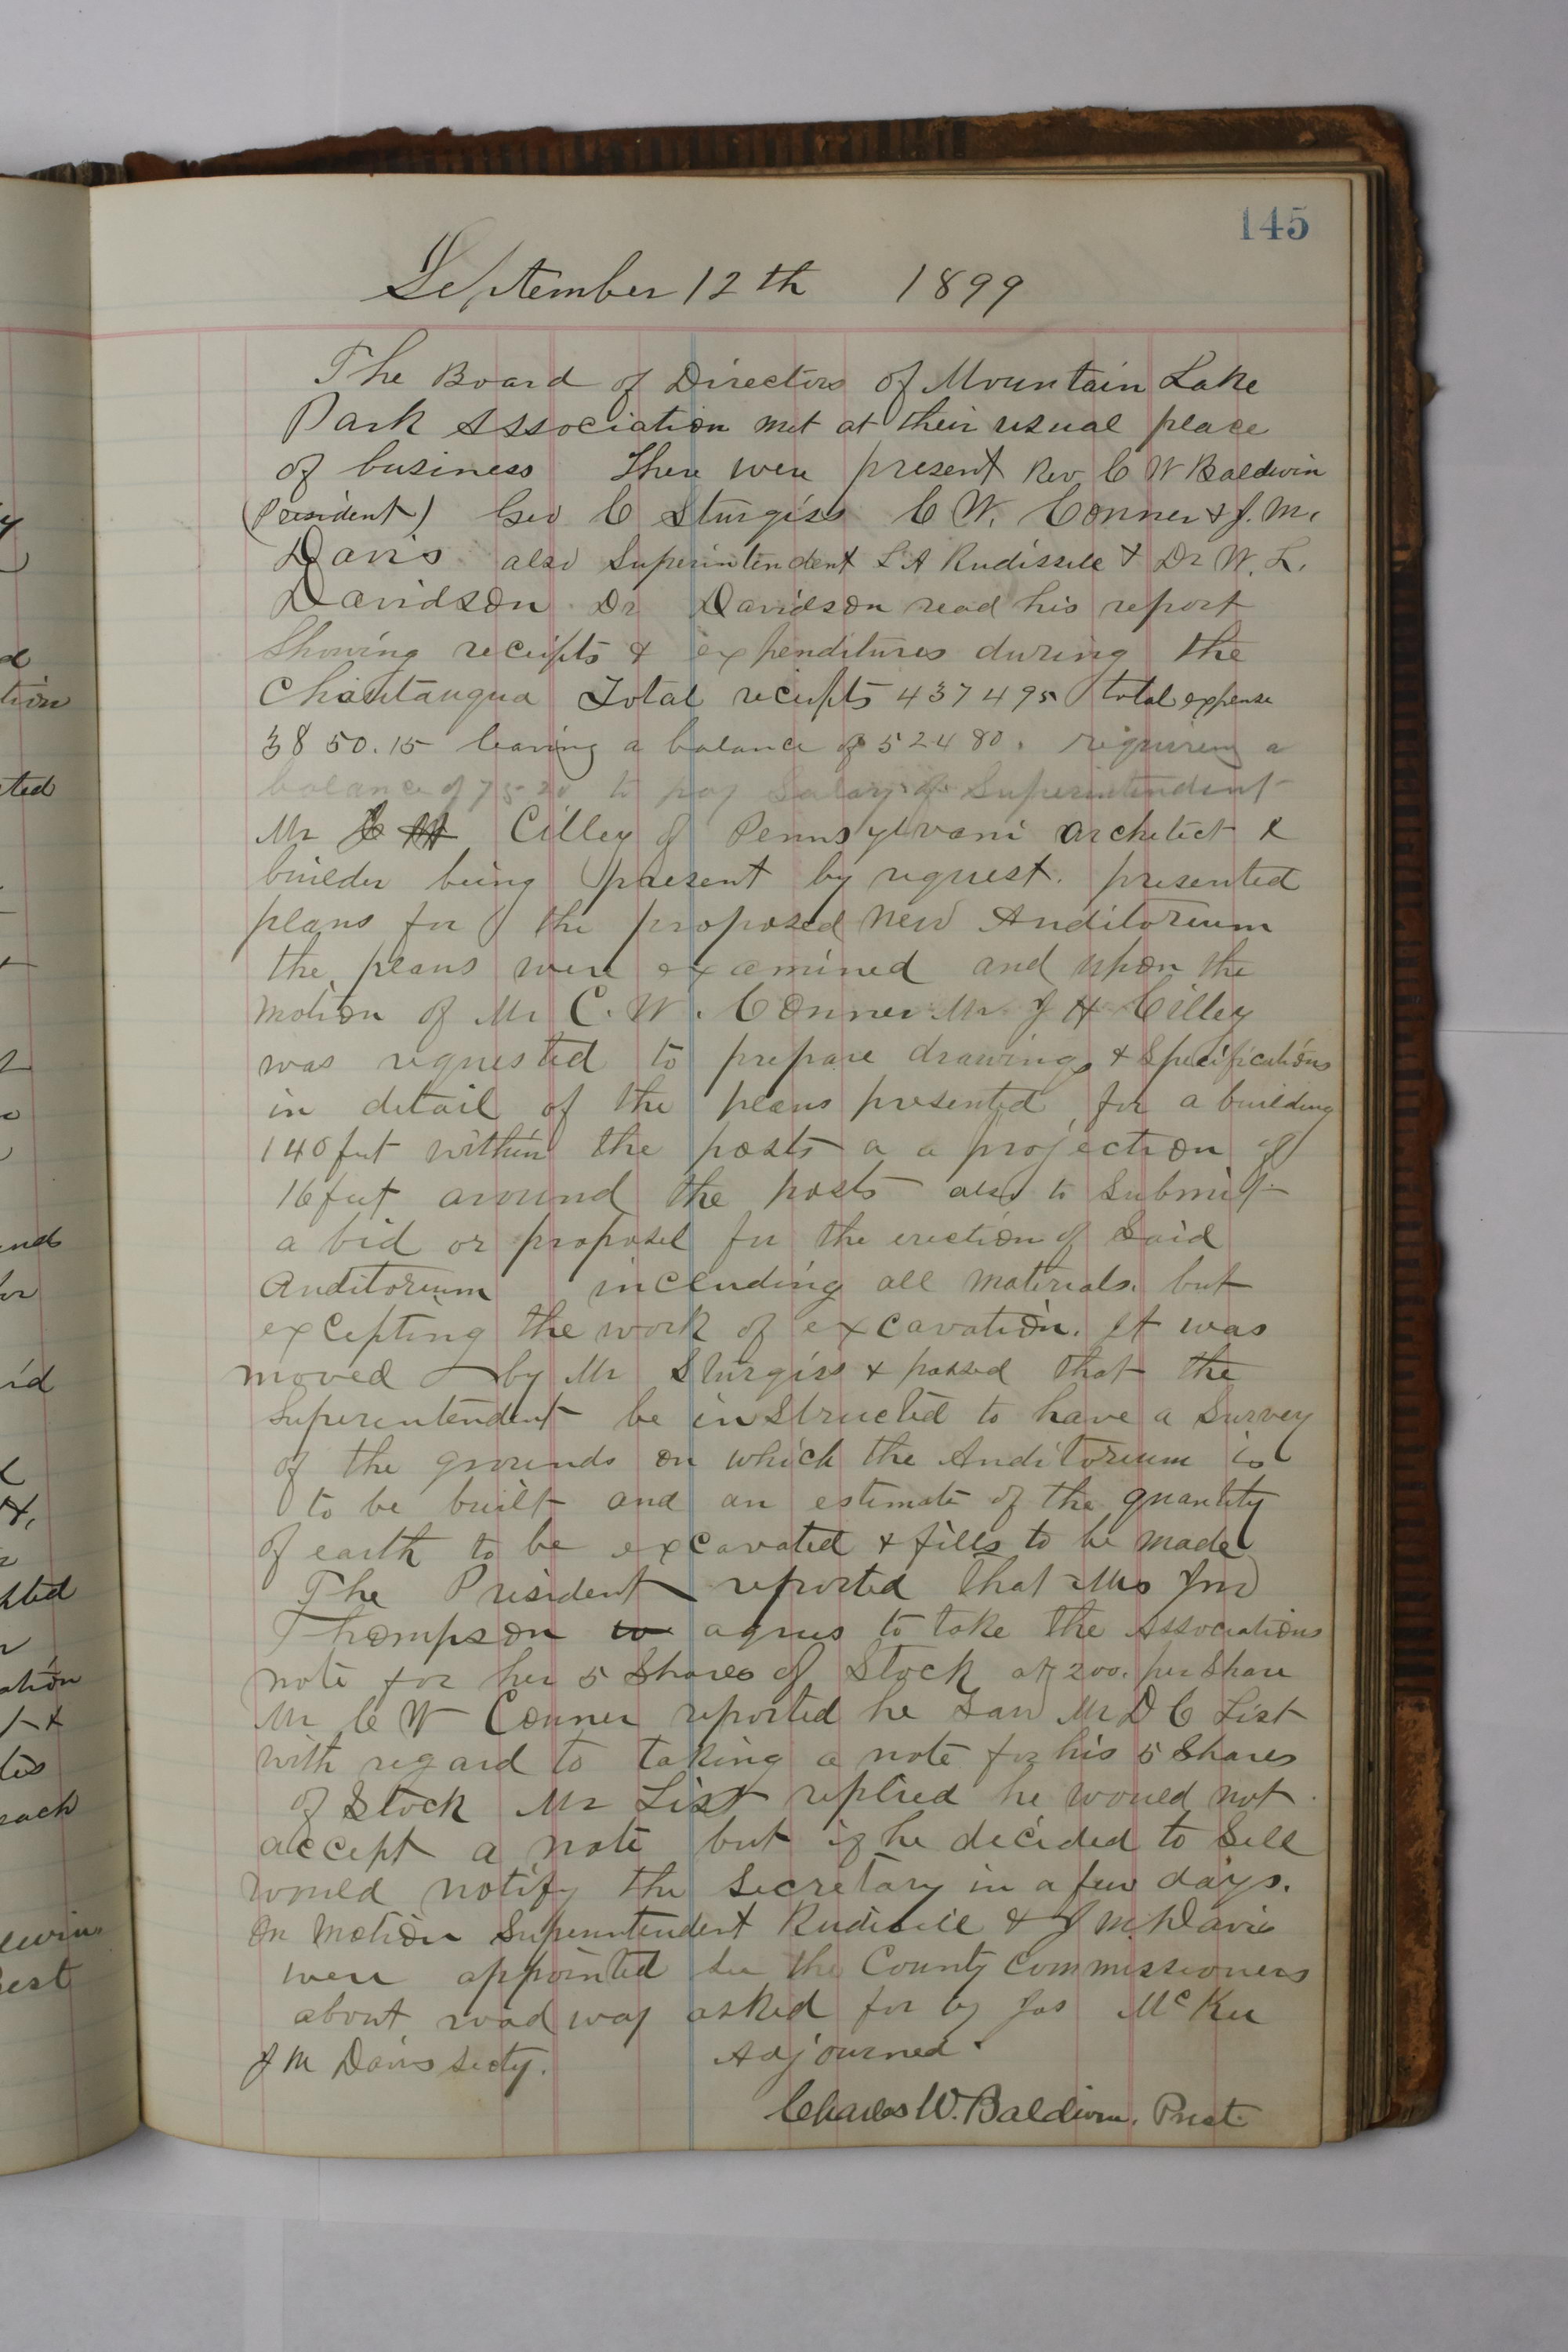 145
September 12th 1899
The Board of Directors of Mountain Lake
Park Association met at their usual place
of business There were present Rev C W Baldwin
(President) Geo C Sturgiss C W. Conner & J. M.
Davis also Superintendent L A Rudisill & Dr W. L.
Davidson Dr Davidson read his report
showing receipts & expenditures during the
Chautauqua Total receipts 437495 total expense
3850.15 leaving a balance of 52480. requiring a
balance of 75 20 to pay Salary of Superintendent
Mr Cilley of Pennsylvani Architect &
builder being present by request. presented
plans for the proposed new Auditorium
the plans were examined and upon the
motion of Mr C. W. Conner Mr J H Cilley
was requested to prepare drawings & Specifications
in detail of the plans presented for a building
140 feet within the posts a a projection of
16 feet around the posts also to submit
a bid or proposel for the erection of Said
Auditorium including all materials. but
excepting the work of excavation. It was
moved by Mr Sturgiss & passed that the
Superintendent be instructed to have a Survey
of the grounds on which the Auditorium is
to be built and an estimate of the quantity
of earth to be excavated & fills to be made
The President reported that Mrs Jno
Thompson agrees to take the Associations
note for her 5 Shares of Stock at 200. per Share
Mr C W Conner reported he saw Mr D C List
with regard to taking a note for his 5 Shares
of Stock Mr List replied he would not
accept a note but if he decided to Sell
would notify the Secretary in a few days.
On motion Superintendent Rudisill & J M. Davis
were appointed see the County Commissioners
about road way asked for by Jas McKee
J M Davis Secty. Adjourned.
Charles W. Baldwin. Prest.